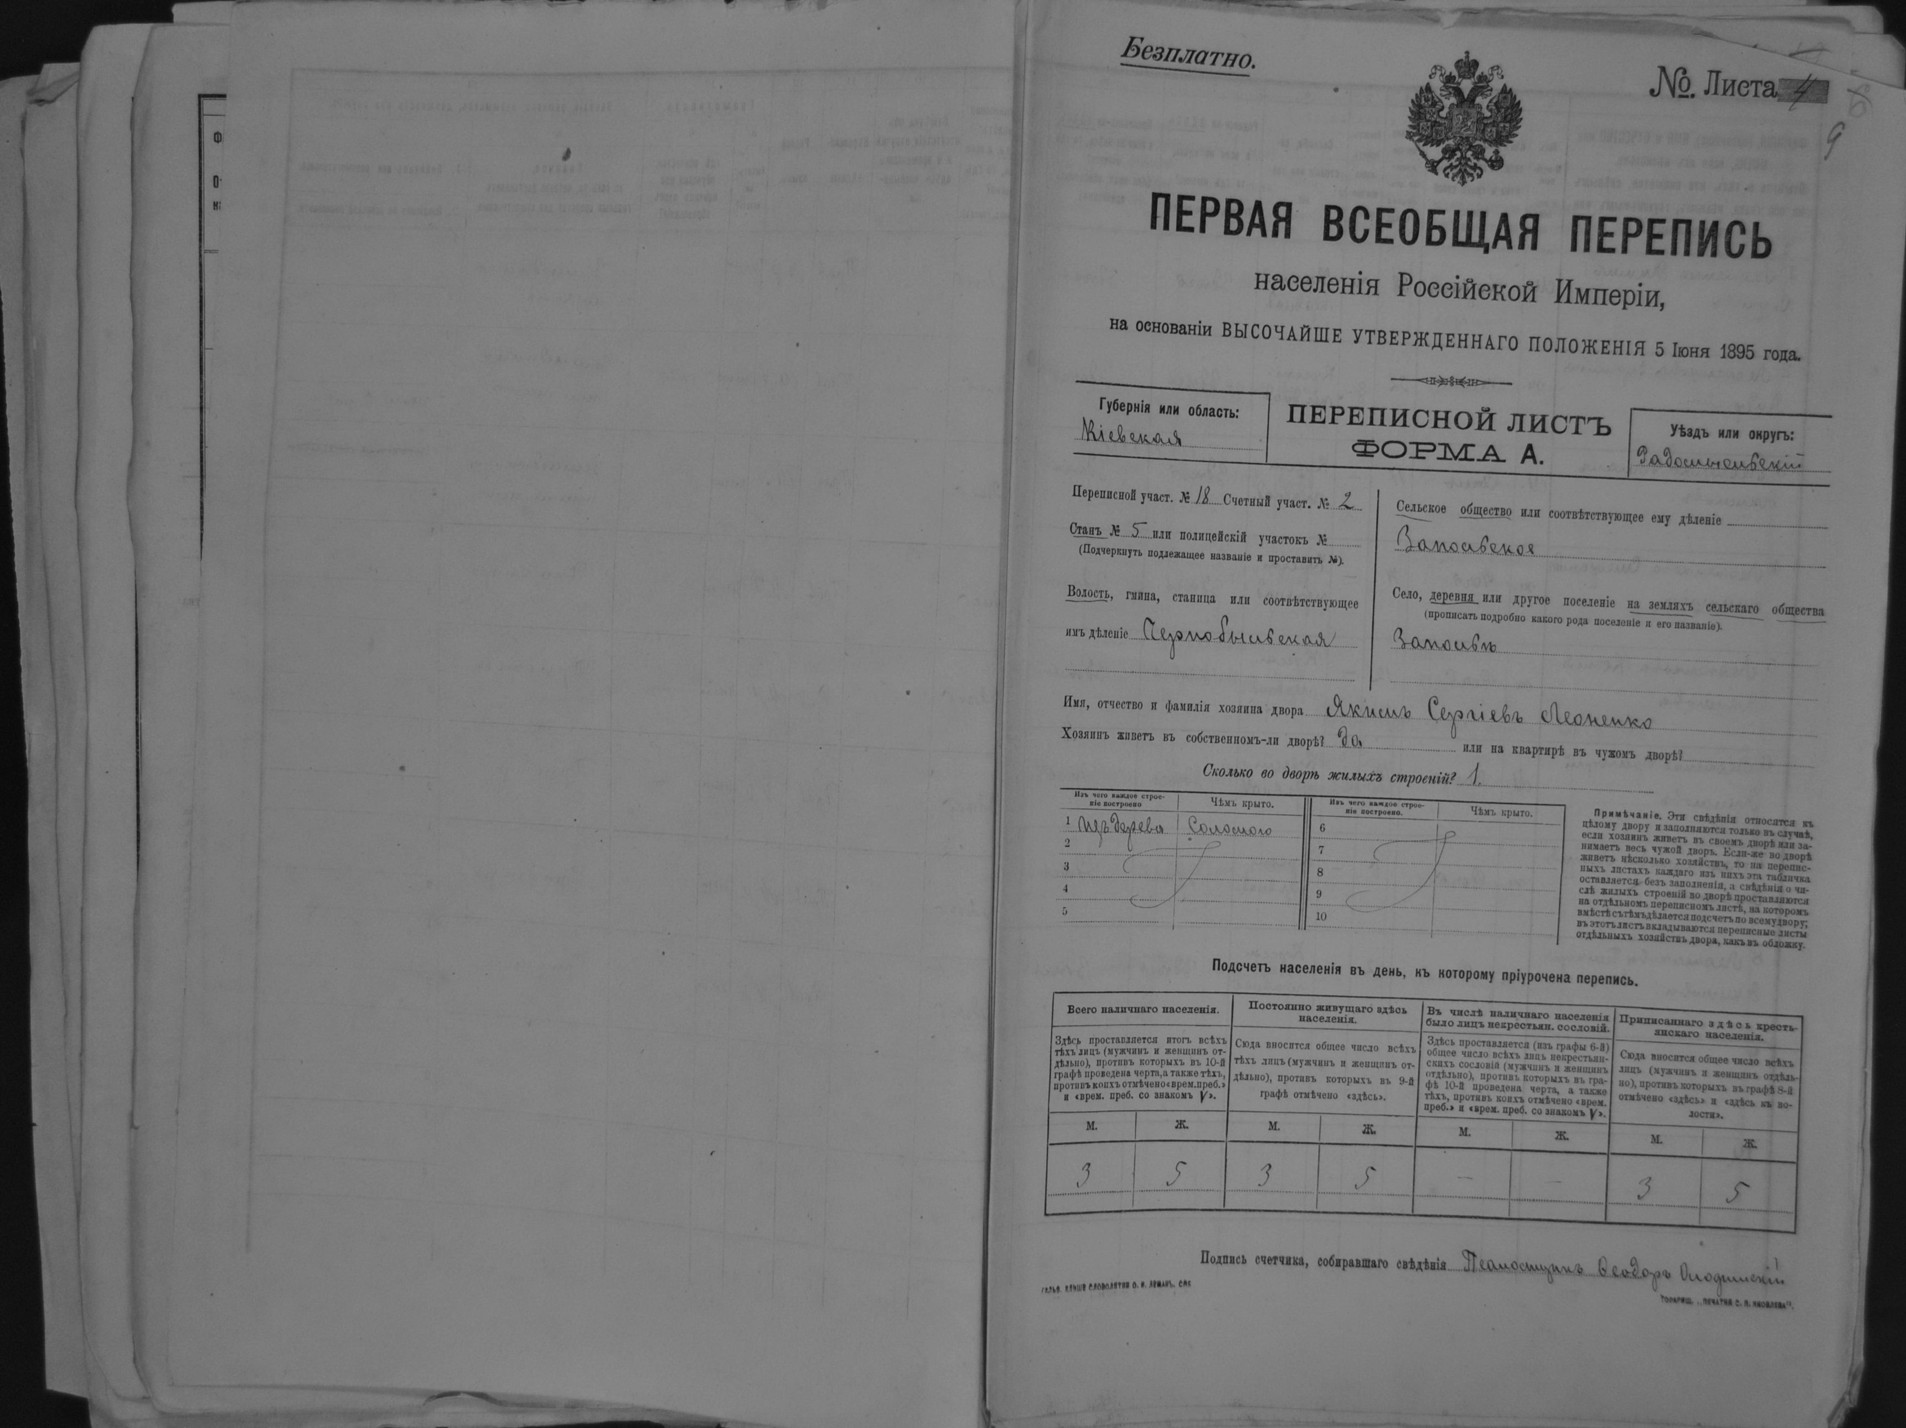 Безплатно.
№. Листа 4
9
ПЕРВАЯ ВСЕОБЩАЯ ПЕРЕПИСЬ
населенія Россійской Имперіи,
на основаніи ВЫСОЧАЙШЕ УТВЕРЖДЕННАГО ПОЛОЖЕНІЯ 5 Іюня 1895 года.
Губернія или область:
Кіевская
ПЕРЕПИСНОЙ ЛИСТЪ
ФОРМА А.
Уѣздъ или округъ:
Радомысльскій
Переписной участ. № 18 Счетный участ. № 2
Станъ № 5 или полицейскій участокъ №
(Подчеркнуть подлежащее названіе и проставить №).
Волость, гмина, станица или соотвѣтствующее
имъ дѣленіе Чернобыльская
Сельское общество или соотвѣтствующее ему дѣленіе
Запольское
Село, деревня или другое поселеніе на земляхъ сельскаго общества
(прописать подробно какого рода поселеніе и его названіе).
Заполье
Имя, отчество и фамилія хозяина двора Якимъ Сергіевъ Леоненко
Хозяинъ живетъ въ собственномъ-ли дворѣ? да или на квартирѣ въ чужомъ дворѣ?
Сколько во дворѣ жилыхъ строеній? 1.
Изъ чего каждое строе-
ніе построено
Чѣмъ крыто.
1 изъ дерева Соломою
2
3
4
5
Изъ чего каждое строе-
ніе построено.
Чѣмъ крыто.
6
7
8
9
10
Примѣчаніе. Эти свѣдѣнія относятся къ
цѣлому двору и заполняются только въ случаѣ,
если хозяинъ живетъ въ своемъ дворѣ или за-
нимаетъ весь чужой дворъ. Если-же во дворѣ
живетъ нѣсколько хозяйствъ, то на перепис-
ныхъ листахъ каждаго изъ нихъ эта табличка
оставляется безъ заполненія, а свѣдѣнія о чи-
слѣ жилыхъ строеній во дворѣ проставляются
на отдѣльномъ переписномъ листѣ, на которомъ
вмѣстѣ съ тѣмъ дѣлается подсчетъ по всему двору;
въ этотъ листъ вкладываются переписные листы
отдѣльныхъ хозяйствъ двора, какъ въ обложку.
Подсчетъ населенія въ день, къ которому пріурочена перепись.
Всего наличнаго населенія.
Здѣсь проставляется итогъ всѣхъ
тѣхъ лицъ (мужчинъ и женщинъ от-
дѣльно), противъ которыхъ въ 10-й
графѣ проведена черта, а также тѣхъ,
противъ коихъ отмѣчено «врем. преб.»
и «врем. преб. со знакомъ V».
М. Ж.
3 5
Постоянно живущаго здѣсь
населенія.
Сюда вносится общее число всѣхъ
тѣхъ лицъ (мужчинъ и женщинъ от-
дѣльно), противъ которыхъ въ 9-й
графѣ отмѣчено «здѣсь».
М. Ж.
3 5
Въ числѣ наличнаго населенія
было лицъ некрестьян. сословій.
Здѣсь проставляется (изъ графы 6-й)
общее число всѣхъ лицъ некрестьян-
скихъ сословій (мужчинъ и женщинъ
отдѣльно), противъ которыхъ въ гра-
фѣ 10-й проведена черта, а также
тѣхъ, противъ коихъ отмѣчено «врем.
преб.» и «врем. преб. со знакомъ V».
М. Ж.
— —
Приписаннаго здѣсь кресть-
янскаго населенія.
Сюда вносится общее число всѣхъ
лицъ (мужчинъ и женщинъ отдѣль-
но), противъ которыхъ въ графѣ 8-й
отмѣчено «здѣсь» и «здѣсь въ во-
лости».
М. Ж.
3 5
Подпись счетчика, собиравшаго свѣдѣнія Псаломщикъ Ѳеодоръ